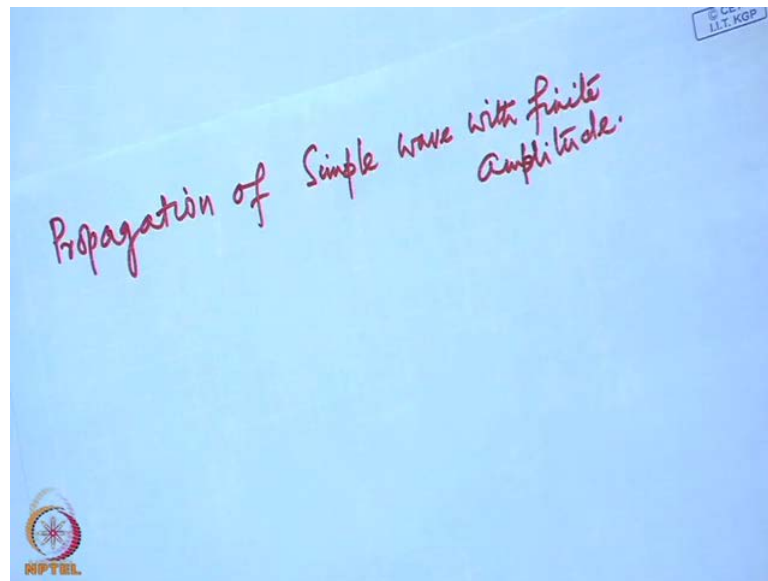 © CET
I.I.T. KGP
Propagation of Simple wave with finite
amplitude.
NPTEL